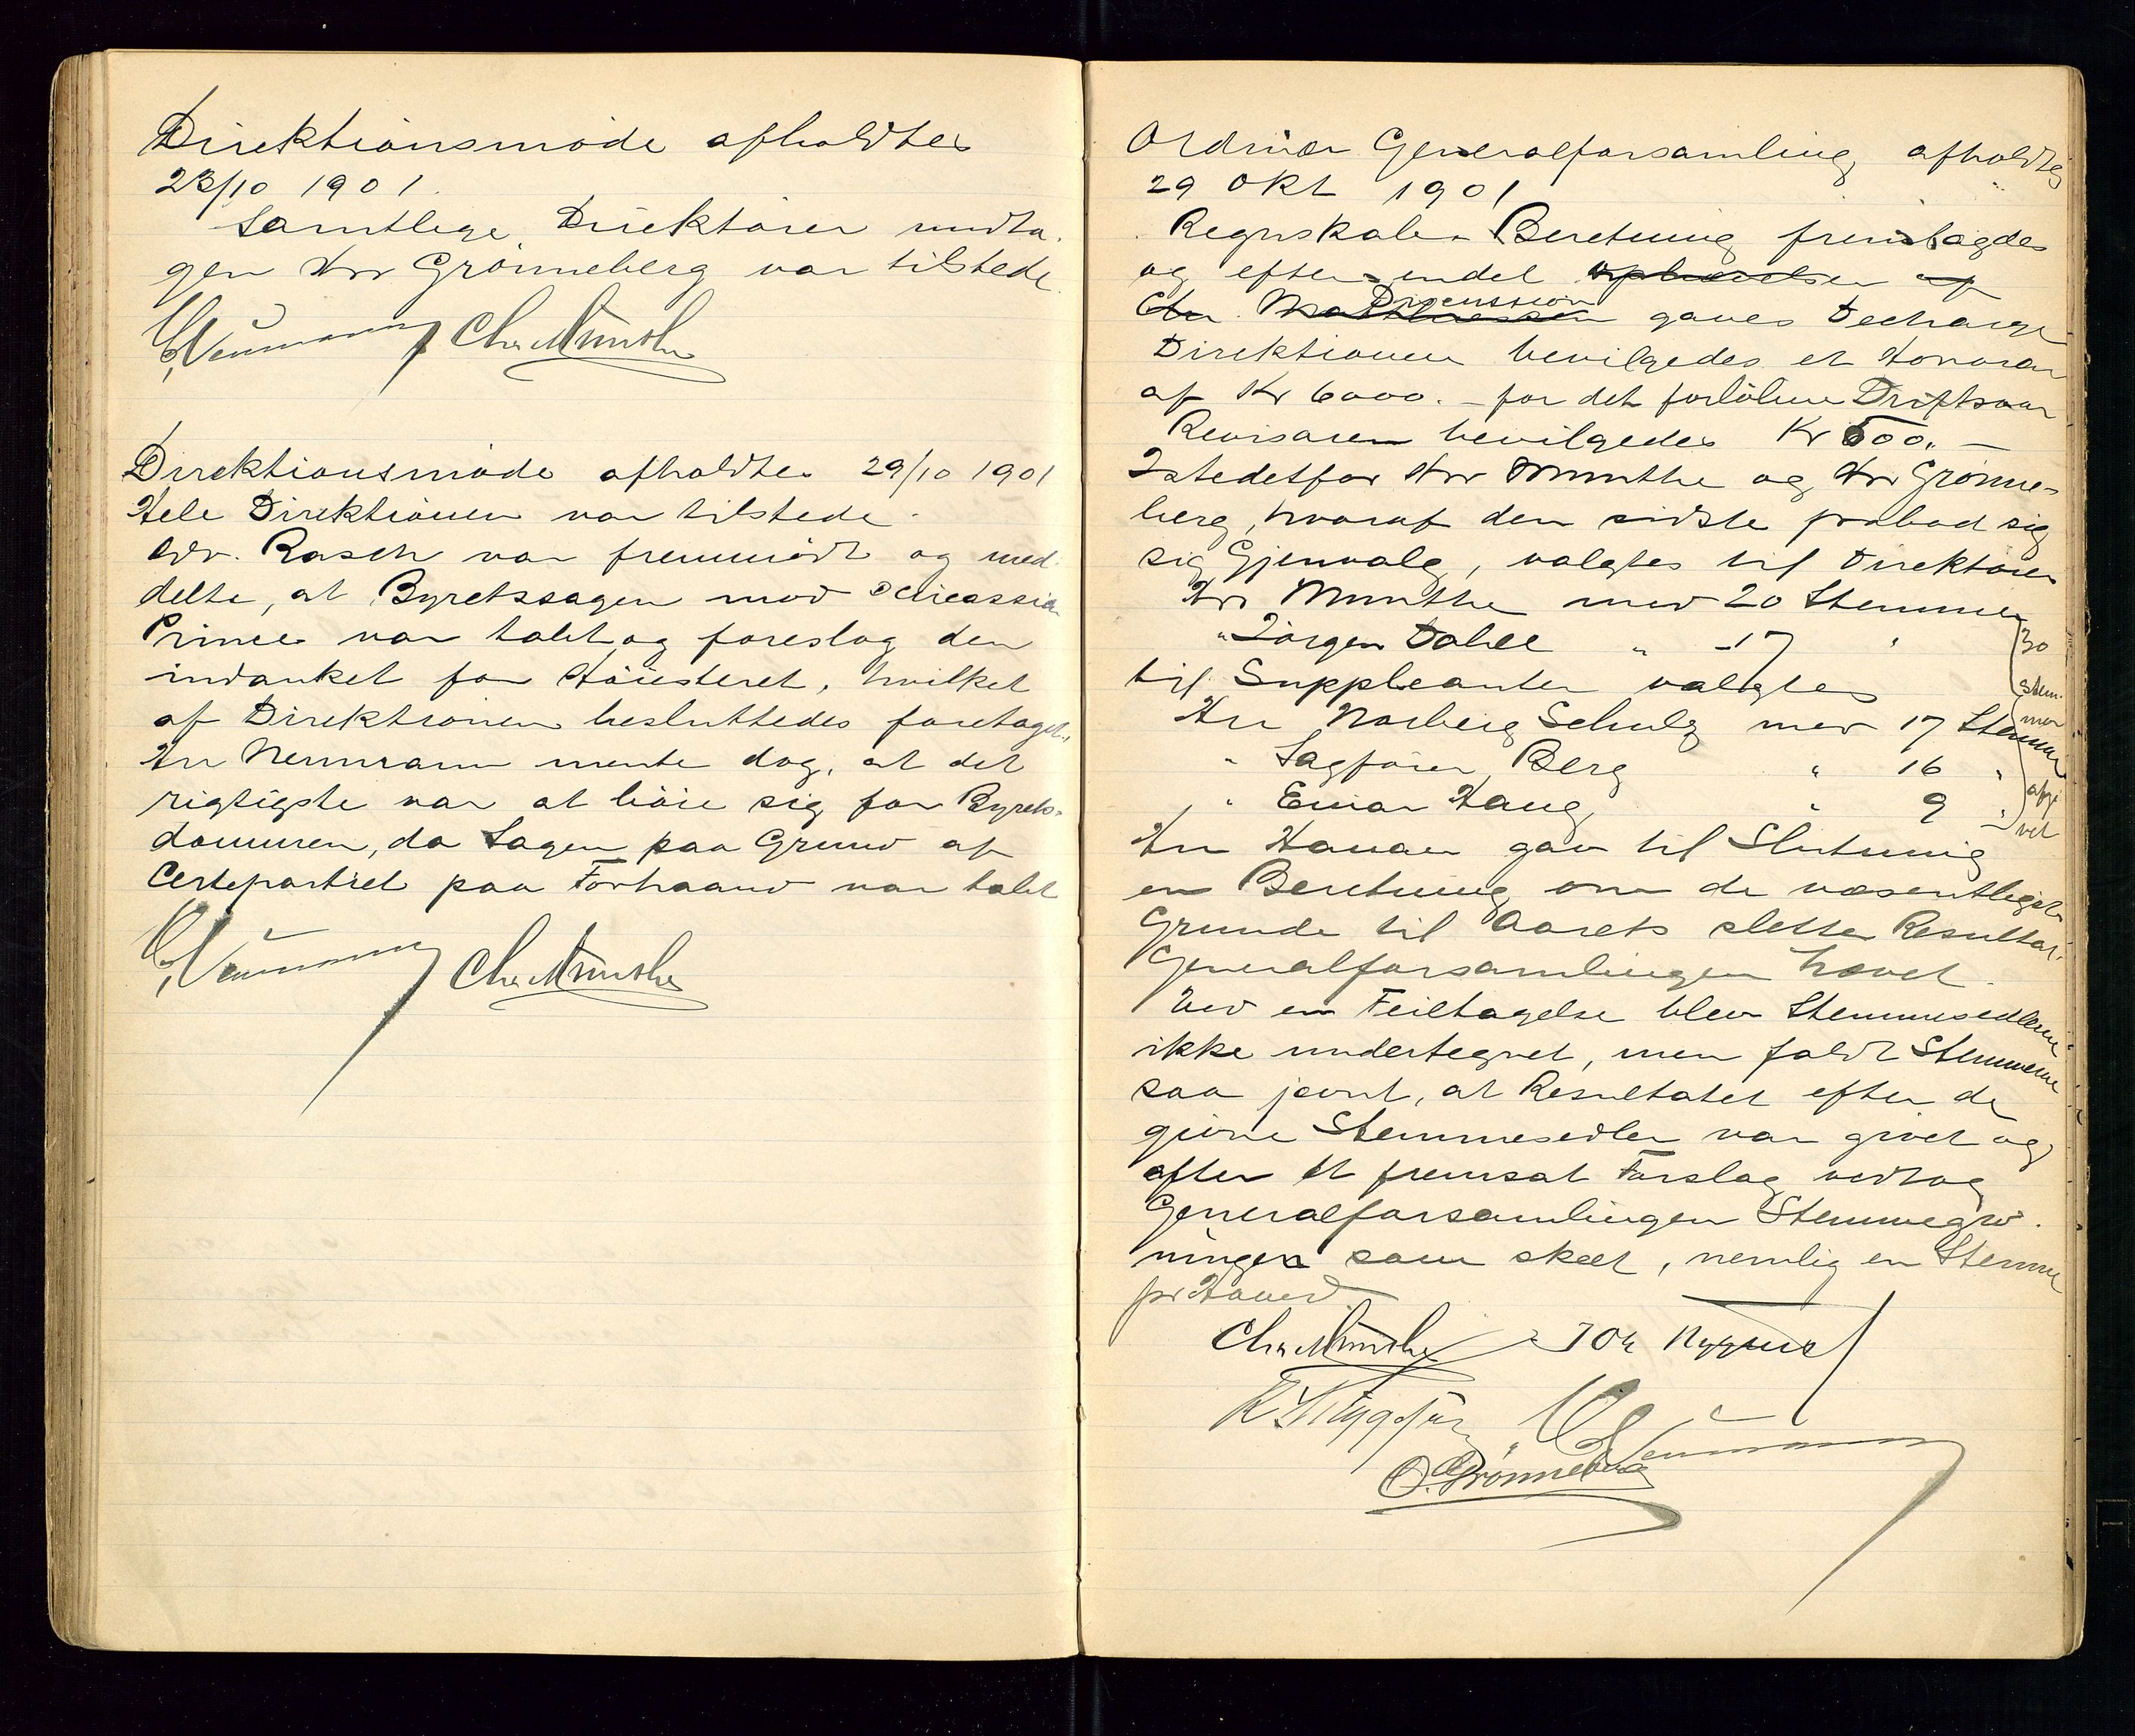 Direktionsmöde afholdtes
23/10 1901.
Samtlige Direktörer undta-
gen Hrr Grönneberg var tilstede.
C. Neumann Chr Münthe
Direktionsmöde afholdtes 29/10 1901
Hele Direktionen var tilstede.
Adv. Rasch var fremmödt og med-
delte, at Byretssagen mod Circassian
Prince var tabt og foreslog den
indanket for Höiesteret, hvilket
af Direktionen besluttedes foretaget.
Hrr Neumann mente dog, at det
rigtigste var at böie sig for Byrets-
dommen, da Sagen paa Grund af
Certepartiet paa Forhaand var tabt
C. Neumann Chr Münthe
Ordinær Generalforsamling afholdtes
29 Okt 1901
Regnskab & Beretning fremlagdes
og efter endel
Discussion gaves Decharge
Direktionen bevilgedes et Honorar
af Kr 6000.- for det forlöbne Driftsaar
Revisoren bevilgedes Kr 500.-
Istedetfor Hrr Munthe og Hrr Grönne-
berg, hvoraf den sidste frabad sig
sig Gjenvalg, valgtes til Direktörer
Hrr Munthe med 20 Stemmer
" Jörgen Dahll " 17 "
til Suppleanter valgtes
Hrr Norberg Schulz med 17 Stemmer
" Sagförer Berg " 16 "
" Einar Haug " 9 "
30
stem-
mer
afgi
vet
Hrr Hanan gav til Slutning
en Beretning om de væsentligste
Grunde til Aarets slette Resultat.
Generalforsamlingen hævet.
Ved en Feiltagelse blev Stemmesedlerne
ikke undertegnet, men faldt Stemmerne
saa jevnt, at Resultatet efter de
givne Stemmesedler var givet og
efter et fremsat Forslag vedtog
Generalforsamlingen Stemmegiv-
ningen som skeet, nemlig en Stemme
pr Hoved
Chr Münthe Joh
C. Neumann
O. Grönneberg